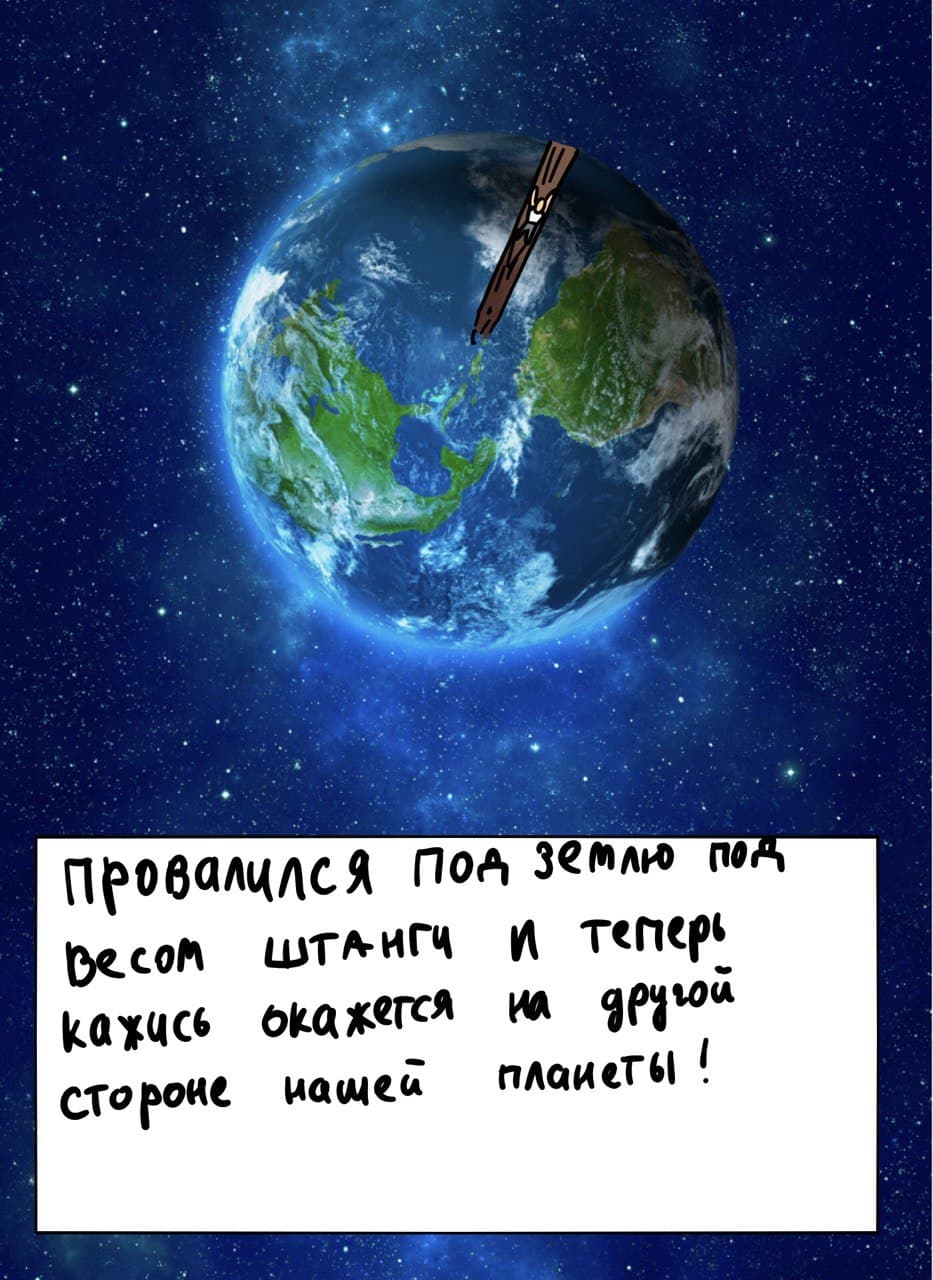 провалился под землю под
весом штанги и теперь
кажись окажется на другой
стороне нашей планеты!